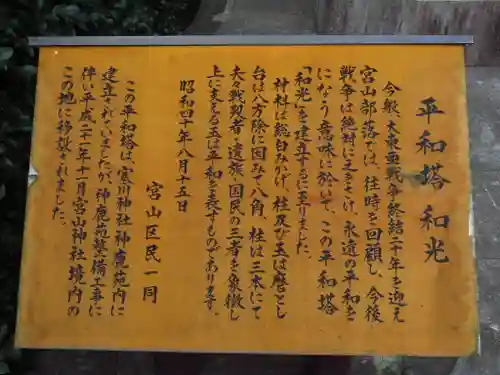 平和塔 和光
今般、大東亜戦争終結二十年を迎え
宮山部落では、往時を回顧し、今後
戦争は絶対にさけ、永遠の平和を
になう意味に於いて、この平和塔
「和光」を建立するに至りました。
神社は総白みかげ、柱及び玉は磨とし
台は八方除に因みて八角、柱は三本にて
夫々戦歿者、遺族、国民の三者を象徴し
上に支える玉は平和を表すものであります。
昭和四十年八月十五日
宮山区民一同
この平和塔は、寒川神社神鹿苑内に
建立されていましたが、神鹿苑整備工事に
伴い平成二十一年十一月宮山神社境内の
この地に移設されました。